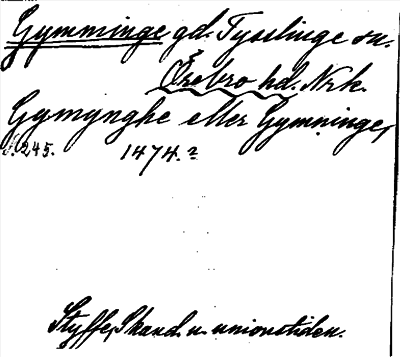 Gymminge gd. Tysslinge sn.
Örebro hd. Nrk.
Gymynghe eller Gymninge,
s. 245. 1474.²
Styffe, Skand. u. unionstiden.